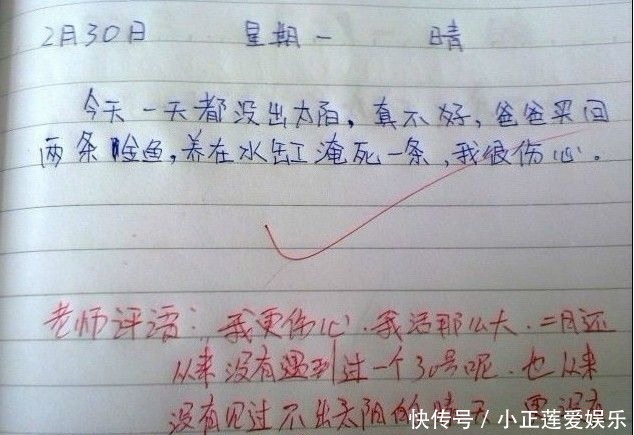 2月30日 星期一 晴
今天一天都没出太阳，真不好，爸爸买回
两条金鱼，养在水缸淹死一条，我很伤心。
老师评语：我更伤心。我活那么大，二月还
从来没有遇到过一个30号呢。也从来
没有见过不出太阳的晴天 更没有
快传号／小正莲爱娱乐